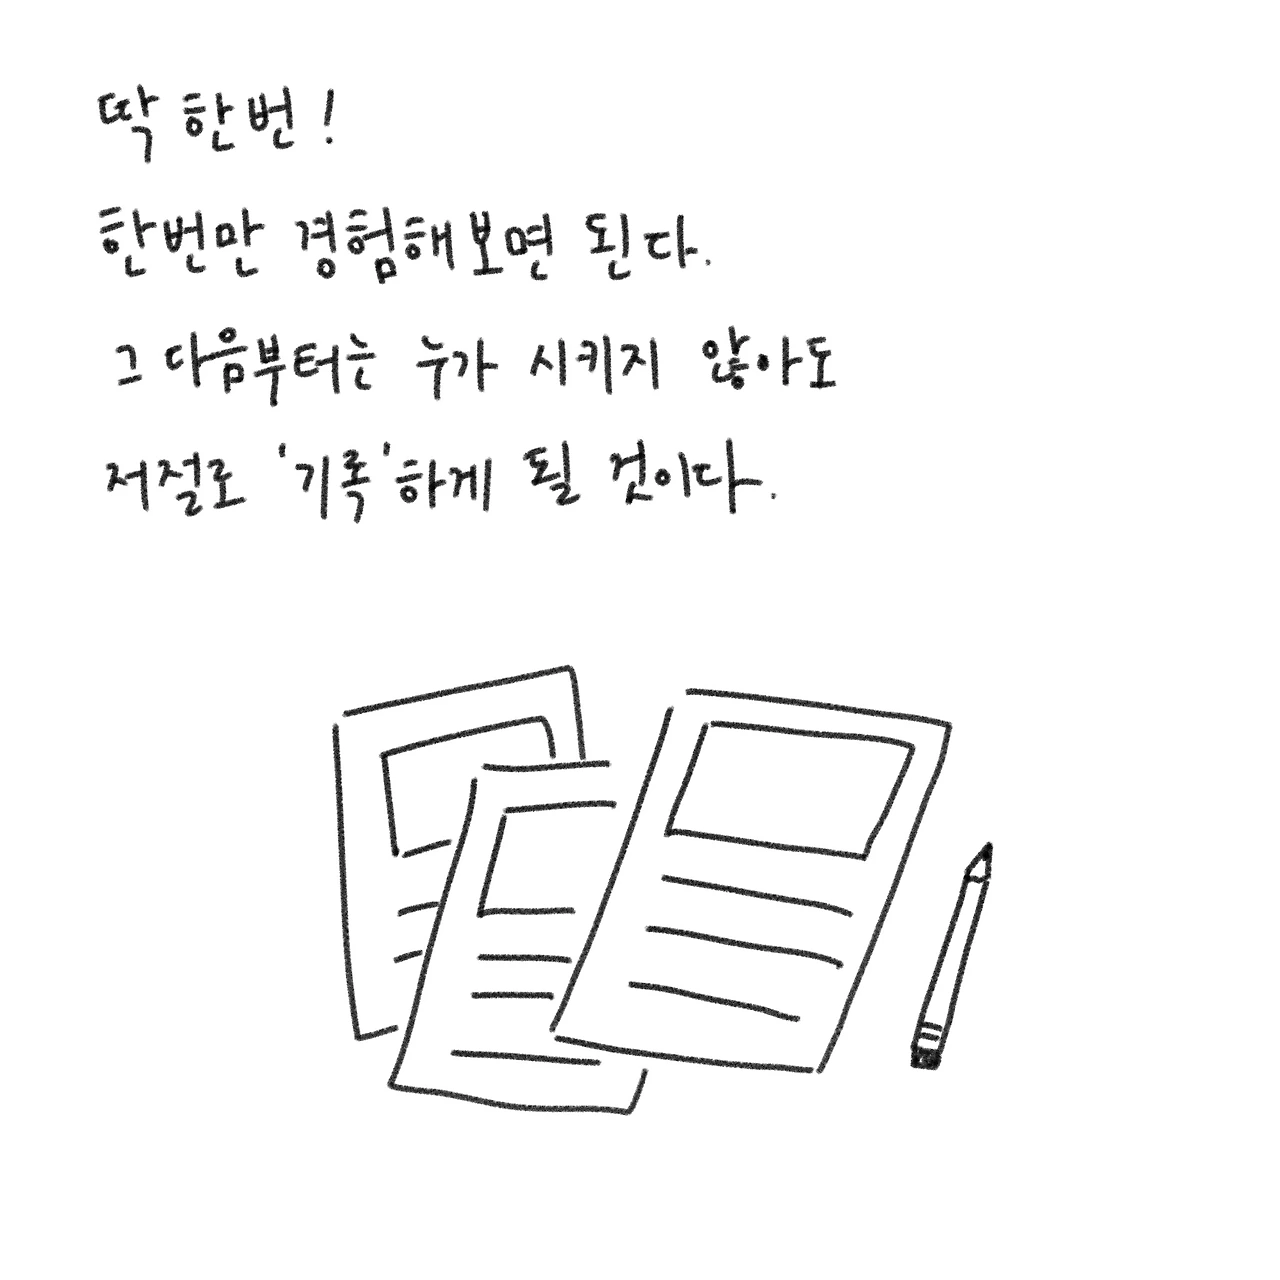 딱 한번!
한번만 경험해보면 된다.
그 다음부터는 누가 시키지 않아도
저절로 '기록'하게 될 것이다.